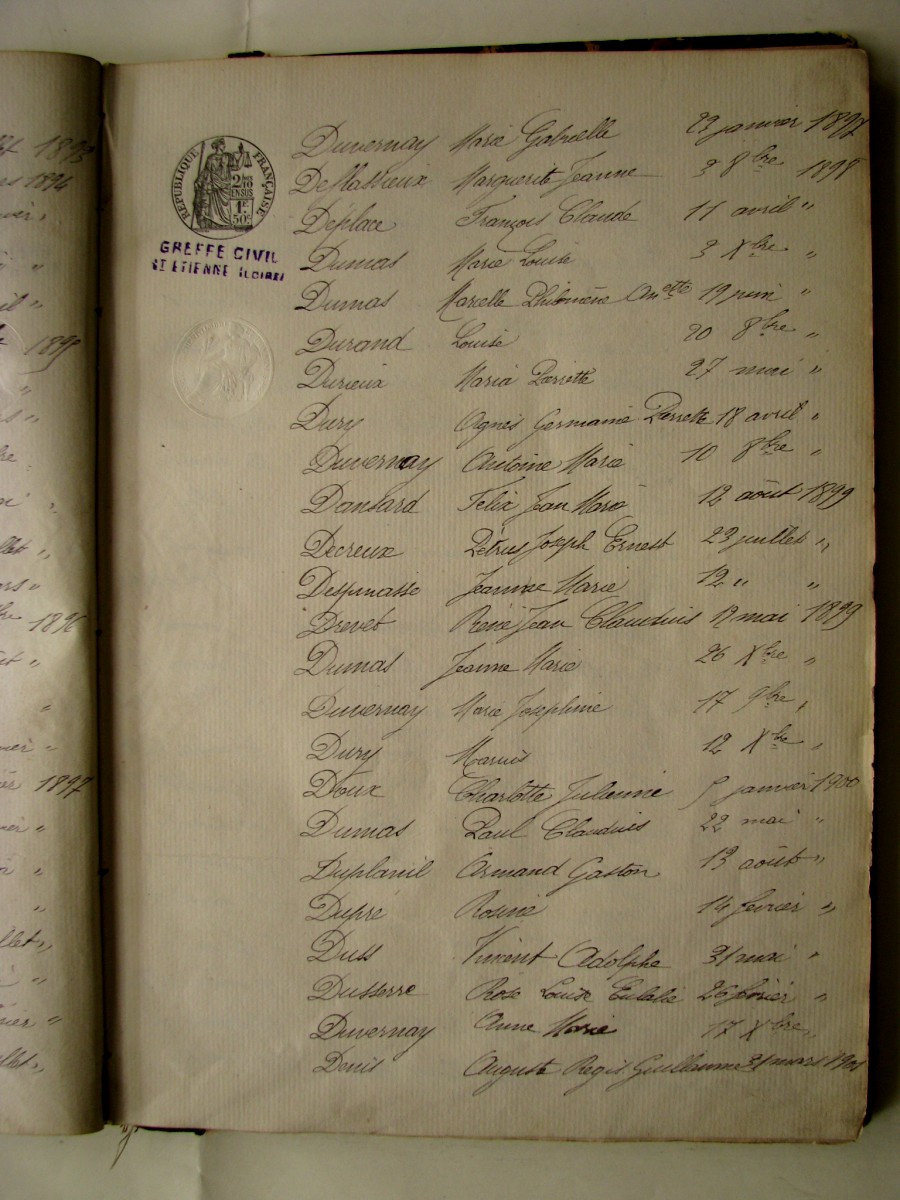 1893
1894
"
"
"
1895
"
"
"
1896
"
"
"
1897
"
"
"
"
"
"
RÉPUBLIQUE FRANÇAISE
2/10 EN SUS
1F 50c
GREFFE CIVIL
ST ETIENNE (LOIRE)
Duvernay Marie Gabrielle 29 janvier 1897
DeMassieux Marguerite Jeanne 3 8bre 1898
Déplace François Claude 11 avril "
Dumas Marie Louise 3 Xbre "
Dumas Marcelle Philomène Anette 19 juin "
Durand Louise 20 8bre "
Durieux Maria Pierrette 27 mai "
Dury Agnès Germanie Pierrette 18 avril "
Duvernay Antoine Marie 10 8bre "
Dansard Felix Jean Marie 12 août 1899
Decreux Pétrus Joseph Ernest 23 juillet "
Despinasse Jeanne Marie 12 " "
Drevet René Jean Claudius 12 mai 1899
Dumas Jeanne Marie 26 Xbre "
Duvernay Marie Josephine 17 9bre "
Dury Marius 12 Xbre "
Doux Charlotte Julanie 5 janvier 1900
Dumas Paul Claudius 22 mai "
Duplanil Armand Gaston 13 août "
Dupré Rosine 14 fevrier "
Duss Vincent Adolphe 31 mai "
Dusserre Rose Louise Eulalie 26 fevrier "
Duvernay Anne Marie 17 Xbre "
Denis Auguste Regis Guillaume 31 mars 1901